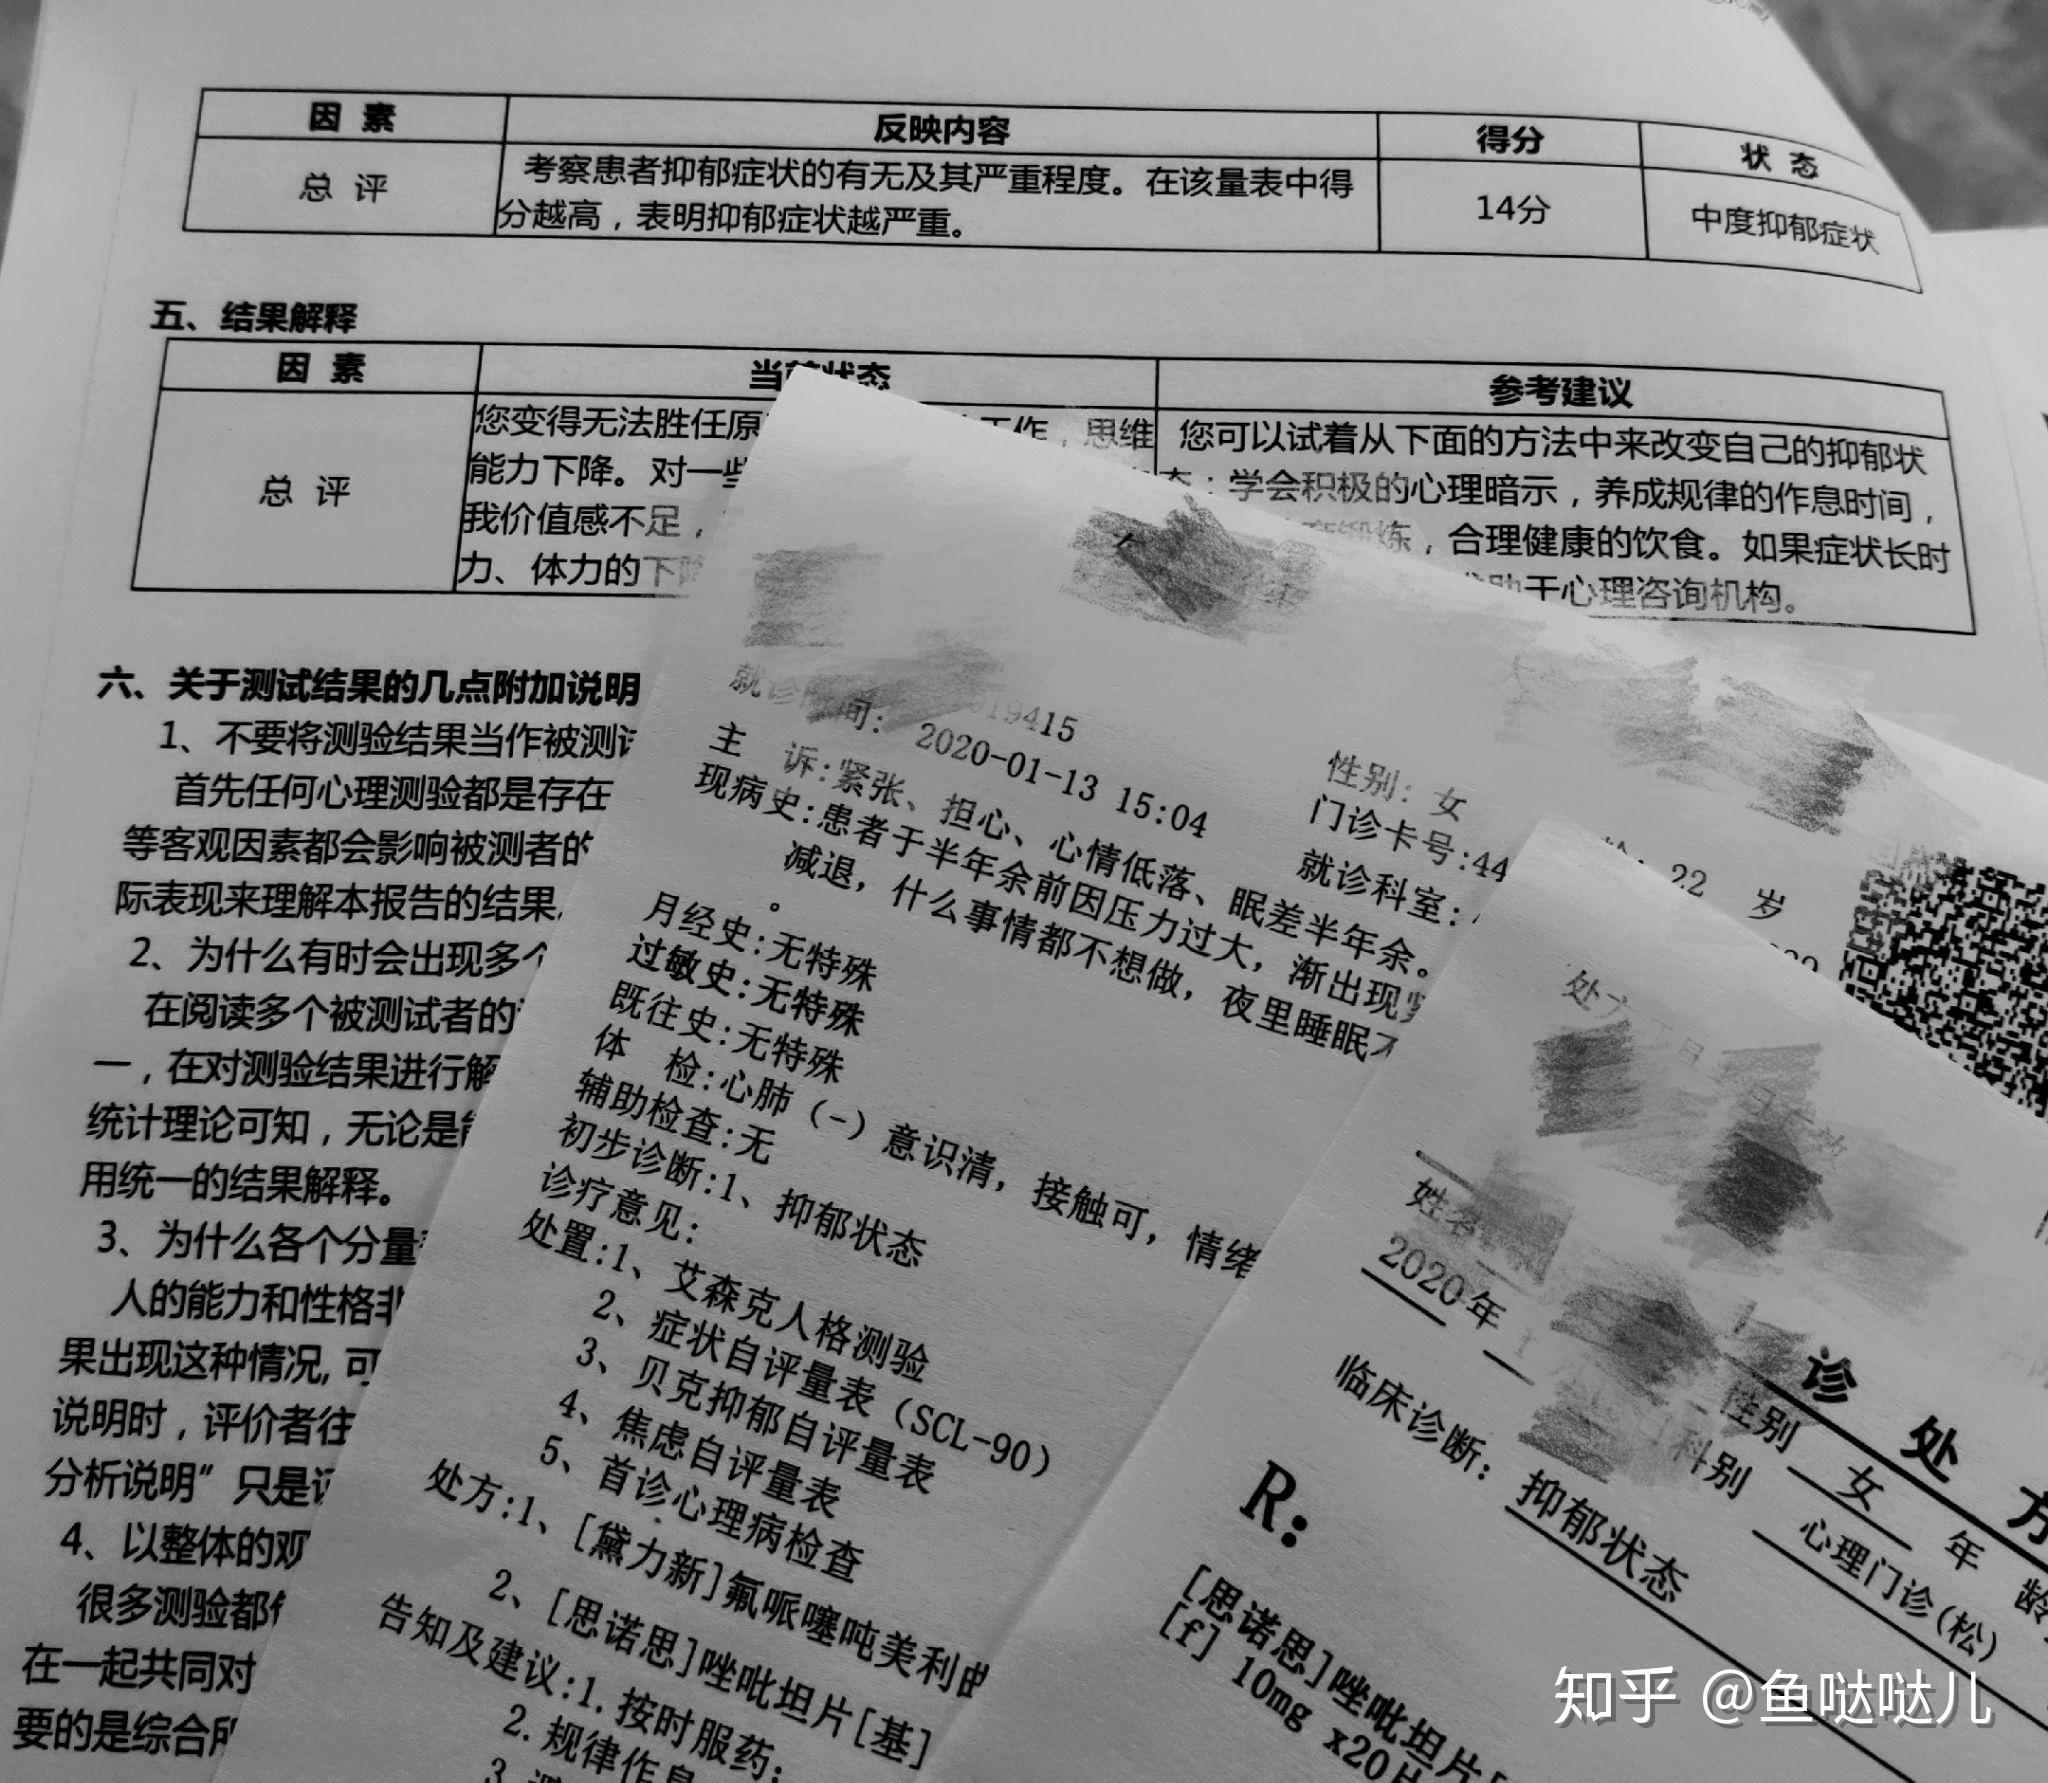 因 素 反映内容 得分 状 态
总 评 考察患者抑郁症状的有无及其严重程度。在该量表中得 14分 中度抑郁症状
分越高，表明抑郁症状越严重。
五、结果解释
因 素 当前状态 参考建议
总 评
您变得无法胜任原
工作，思维
能力下降。对一些
我价值感不足，
力、体力的下降
您可以试着从下面的方法中来改变自己的抑郁状
态：学会积极的心理暗示，养成规律的作息时间，
锻炼，合理健康的饮食。如果症状长时
求助于心理咨询机构。
六、关于测试结果的几点附加说明
1、不要将测验结果当作被测试
首先任何心理测验都是存在
等客观因素都会影响被测者的
际表现来理解本报告的结果
2、为什么有时会出现多个
在阅读多个被测试者的
一，在对测验结果进行解
统计理论可知，无论是
用统一的结果解释。
3、为什么各个分量
人的能力和性格非
果出现这种情况，可
说明时，评价者往
分析说明”只是
4、以整体的观
很多测验都
在一起共同对
要的是综合所
019415
就诊时间： 2020-01-13 15:04
性别：女
22 岁
门诊卡号:44
就诊科室:
主 诉:紧张、担心、心情低落、眠差半年余。
现病史:患者于半年余前因压力过大，渐出现
减退，什么事情都不想做，夜里睡眠不
。
月经史:无特殊
过敏史:无特殊
既往史:无特殊
体 检:心肺（-）意识清，接触可，情绪
辅助检查:无
初步诊断:1、抑郁状态
诊疗意见:
处置:1、艾森克人格测验
2、症状自评量表（SCL-90）
3、贝克抑郁自评量表
4、焦虑自评量表
5、首诊心理病检查
处方:1、[黛力新]氟哌噻吨美利曲
2、[思诺思]唑吡坦片[基]
告知及建议:1.按时服药;
2.规律作息
3.
诊 处 方
姓名
性别 女 年 龄
2020年
科别 心理门诊(松)
临床诊断： 抑郁状态
R:
[思诺思]唑吡坦片[
[f] 10mg x20片
知乎 @鱼哒哒儿